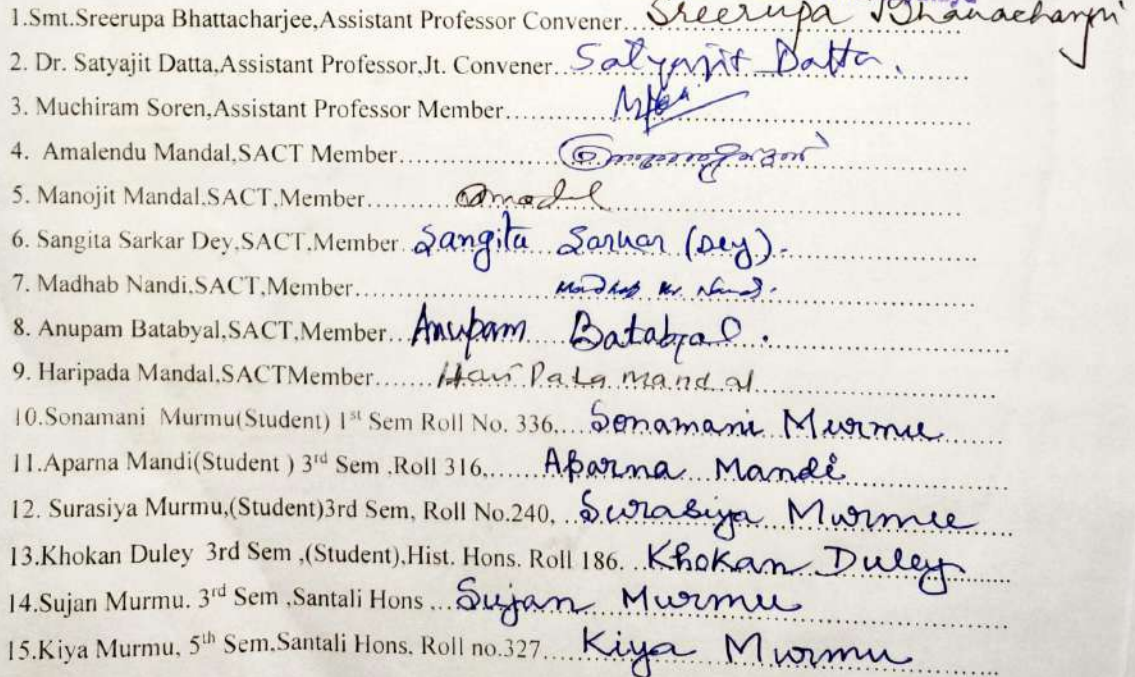 1.Smt.Sreerupa Bhattacharjee,Assistant Professor Convener... Sreerupa Bhattacharjee
2. Dr. Satyajit Datta,Assistant Professor,Jt. Convener... Satyajit Datta.
3. Muchiram Soren,Assistant Professor Member...
4. Amalendu Mandal,SACT Member...
5. Manojit Mandal.SACT,Member...
6. Sangita Sarkar Dey,SACT,Member... Sangita Sarkar (Dey).
7. Madhab Nandi,SACT,Member... Madhab Kr. Nandi.
8. Anupam Batabyal,SACT,Member... Anupam Batabyal.
9. Haripada Mandal,SACTMember... Hari Pada Mandal
10.Sonamani Murmu(Student) 1st Sem Roll No. 336... Sonamani Murmu
11.Aparna Mandi(Student ) 3rd Sem ,Roll 316... Aparna Mandi
12. Surasiya Murmu,(Student)3rd Sem, Roll No.240, ... Surasiya Murmu
13.Khokan Duley 3rd Sem ,(Student),Hist. Hons. Roll 186. ... Khokan Duley
14.Sujan Murmu. 3rd Sem ,Santali Hons ... Sujan Murmu
15.Kiya Murmu, 5th Sem,Santali Hons. Roll no.327... Kiya Murmu